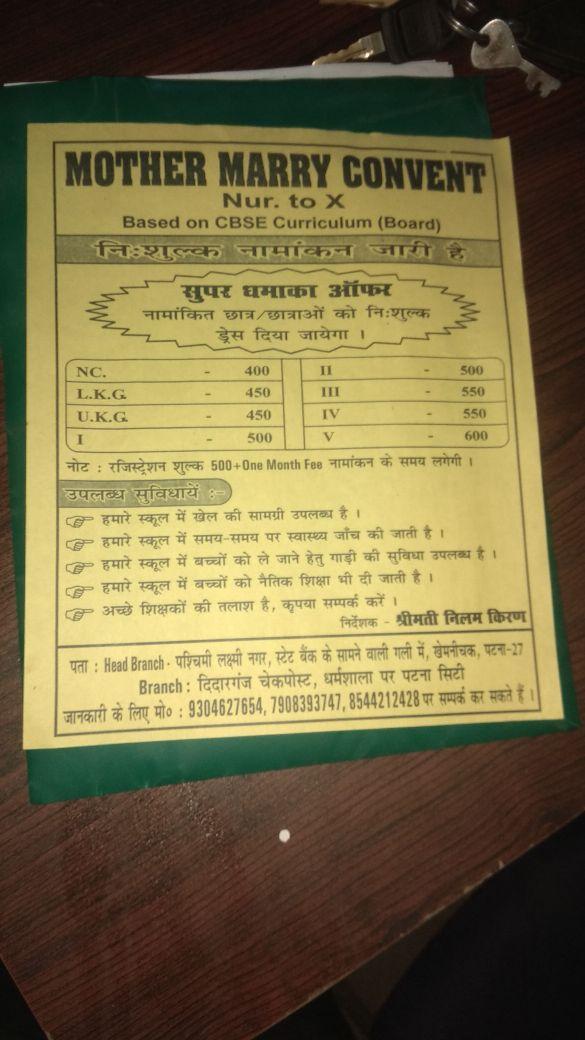 MOTHER MARRY CONVENT
Nur. to X
Based on CBSE Curriculum (Board)
निःशुल्क नामांकन जारी है
सुपर धमाका ऑफर
नामांकित छात्र/छात्राओं को निःशुल्क
ड्रेस दिया जायेगा ।
NC. - 400
L.K.G. - 450
U.K.G. - 450
I - 500
II - 500
III - 550
IV - 550
V - 600
नोट : रजिस्ट्रेशन शुल्क 500+One Month Fee नामांकन के समय लगेगी ।
उपलब्ध सुविधायें :-
हमारे स्कूल में खेल की सामग्री उपलब्ध है ।
हमारे स्कूल में समय-समय पर स्वास्थ्य जाँच की जाती है ।
हमारे स्कूल में बच्चों को ले जाने हेतु गाड़ी की सुविधा उपलब्ध है ।
हमारे स्कूल में बच्चों को नैतिक शिक्षा भी दी जाती है ।
अच्छे शिक्षकों की तलाश है, कृपया सम्पर्क करें ।
निर्देशक - श्रीमती निलम किरण
पता : Head Branch - पश्चिमी लक्ष्मी नगर, स्टेट बैंक के सामने वाली गली में, खेमनीचक, पटना-27
Branch : दिदारगंज चेकपोस्ट, धर्मशाला पर पटना सिटी
जानकारी के लिए मो० : 9304627654, 7908393747, 8544212428 पर सम्पर्क कर सकते हैं ।